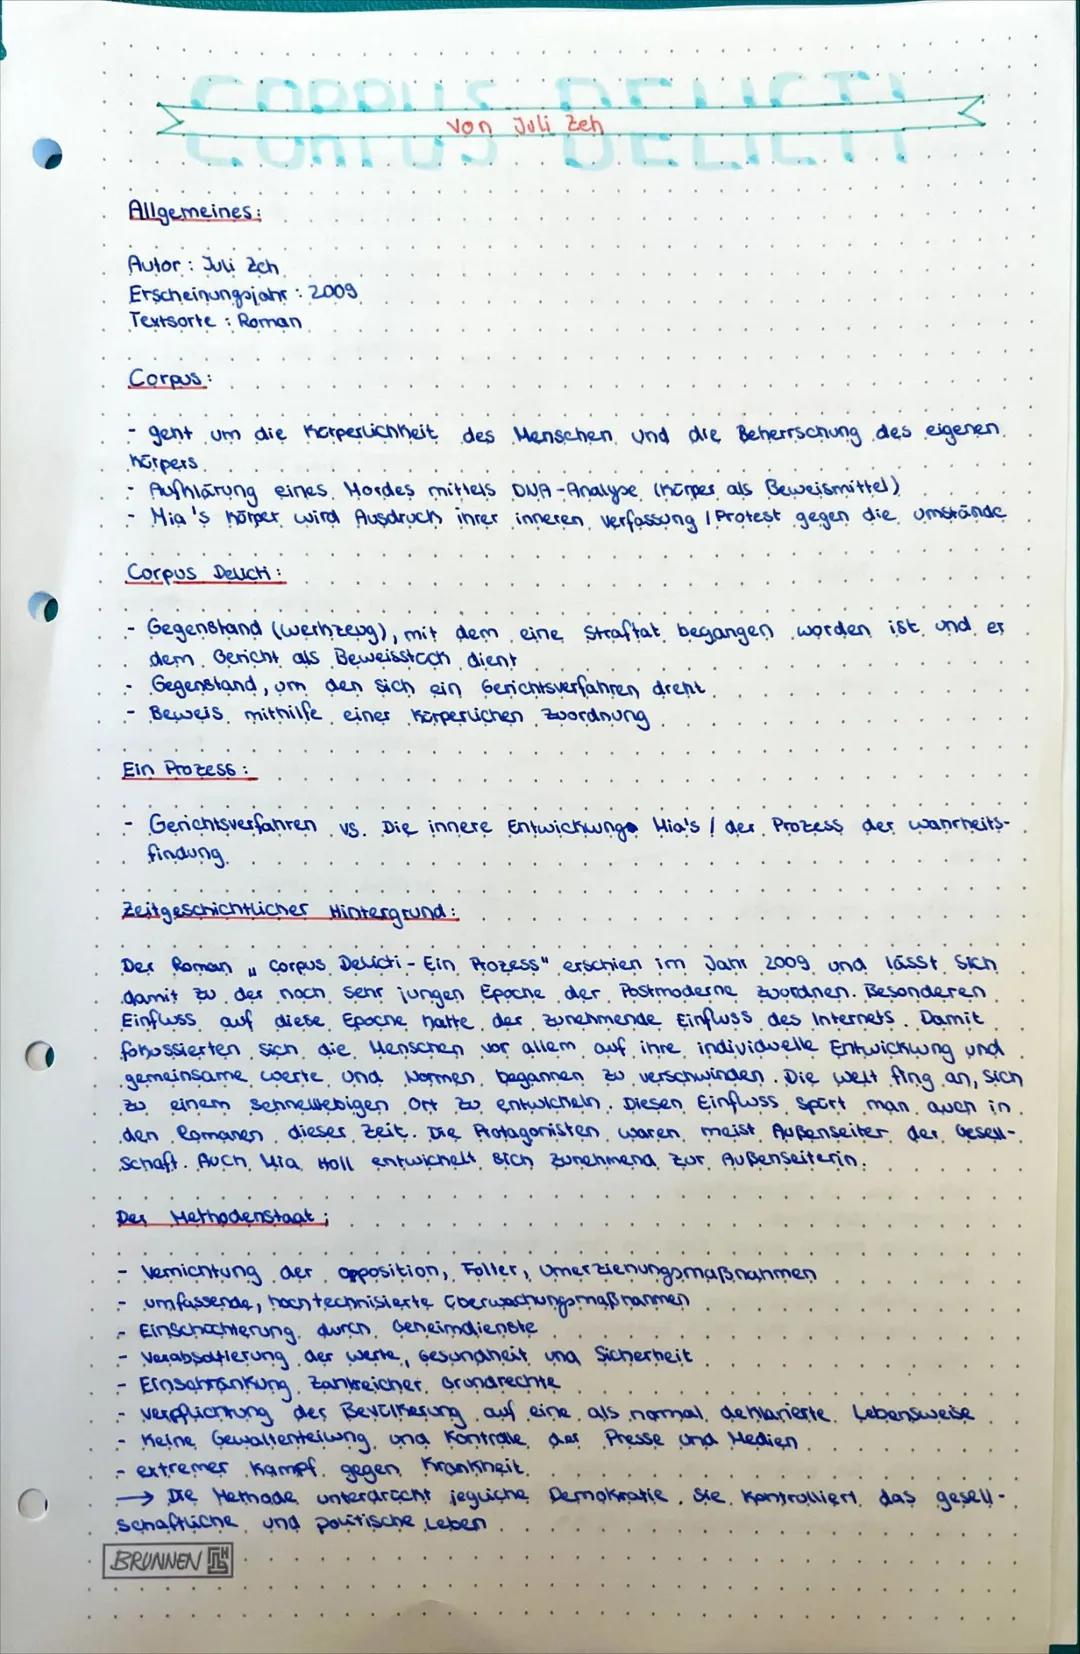 CORPUS DELICTI
von Juli Zeh
Allgemeines:
Autor: Juli Zeh
Erscheinungsjahr: 2009
Textsorte: Roman
Corpus:
- geht um die Körperlichkeit des Menschen und die Beherrschung des eigenen
Körpers
- Aufklärung eines Mordes mittels DNA-Analyse (Körper als Beweismittel)
- Mia's Körper wird Ausdruck ihrer inneren Verfassung / Protest gegen die Umstände
Corpus Delicti:
- Gegenstand (Werkzeug), mit dem eine Straftat begangen worden ist und er
dem Gericht als Beweisstück dient
- Gegenstand, um den sich ein Gerichtsverfahren dreht
- Beweis mithilfe einer körperlichen Zuordnung
Ein Prozess:
- Gerichtsverfahren vs. Die innere Entwicklung Mia's / der Prozess der Wahrheits-
findung.
Zeitgeschichtlicher Hintergrund:
Der Roman „Corpus Delicti - Ein Prozess" erschien im Jahr 2009 und lässt sich
damit zu der noch sehr jungen Epoche der Postmoderne zuordnen. Besonderen
Einfluss auf diese Epoche hatte der zunehmende Einfluss des Internets. Damit
fokussierten sich die Menschen vor allem auf ihre individuelle Entwicklung und
gemeinsame Werte und Normen begannen zu verschwinden. Die Welt fing an, sich
zu einem schnelllebigen Ort zu entwickeln. Diesen Einfluss spürt man auch in
den Romanen dieser Zeit. Die Protagonisten waren meist Außenseiter der Gesell-
schaft. Auch Mia Holl entwickelt sich zunehmend zur Außenseiterin.
Der Methodenstaat:
- Vernichtung der Opposition, Folter, Umerziehungsmaßnahmen
- umfassende, hochtechnisierte Überwachungsmaßnahmen
- Einschüchterung durch Geheimdienste
- Verabsoltierung der Werte, Gesundheit und Sicherheit
- Einschränkung zahlreicher Grundrechte
- Verpflichtung der Bevölkerung auf eine als normal deklarierte Lebensweise
- Keine Gewaltenteilung und Kontrolle der Presse und Medien
- extremer Kampf gegen Krankheit
→ Die Methode unterdrückt jegliche Demokratie. Sie kontrolliert das gesell-
schaftliche und politische Leben
BRUNNEN